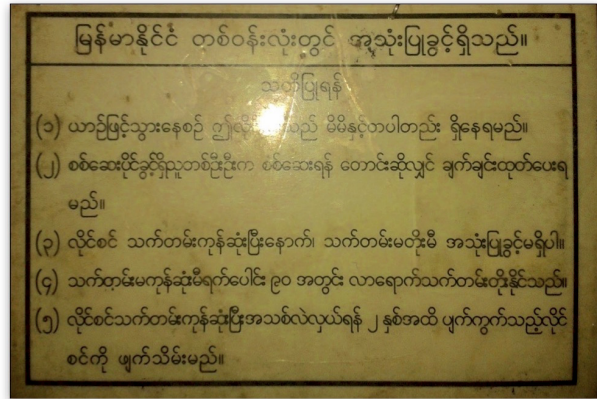 မြန်မာနိုင်ငံ တစ်ဝန်းလုံးတွင် အသုံးပြုခွင့်ရှိသည်။
သတိပြုရန်
(၁) ယာဉ်ဖြင့်သွားနေစဉ် ဤလိုင်စင်သည် မိမိနှင့်တပါတည်း ရှိနေရမည်။
(၂) စစ်ဆေးပိုင်ခွင့်ရှိသူတစ်ဦးဦးက စစ်ဆေးရန် တောင်းဆိုလျှင် ချက်ချင်းထုတ်ပေးရ
မည်။
(၃) လိုင်စင် သက်တမ်းကုန်ဆုံးပြီးနောက်၊ သက်တမ်းမတိုးမီ အသုံးပြုခွင့်မရှိပါ။
(၄) သက်တမ်းမကုန်ဆုံးမီရက်ပေါင်း ၉၀ အတွင်း လာရောက်သက်တမ်းတိုးနိုင်သည်။
(၅) လိုင်စင်သက်တမ်းကုန်ဆုံးပြီးအသစ်လဲလှယ်ရန် ၂ နှစ်အထိ ပျက်ကွက်သည့်လိုင်
စင်ကို ဖျက်သိမ်းမည်။